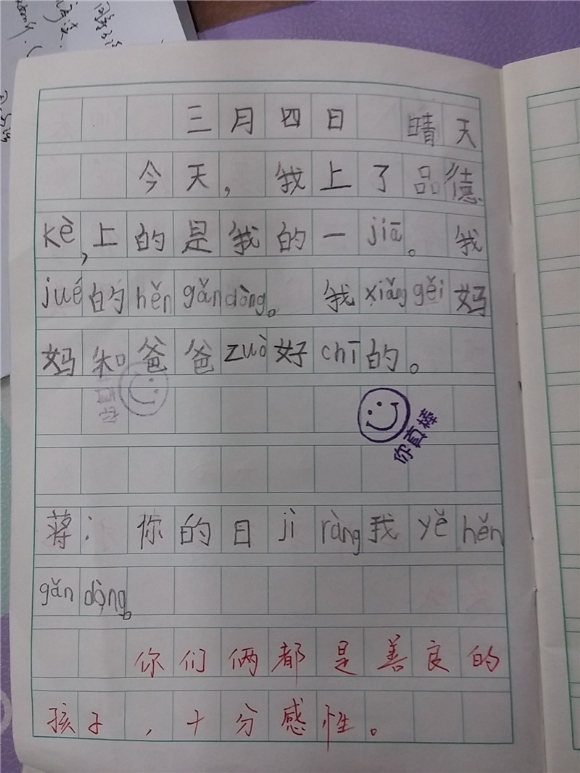 三月四日 晴天
今天，我上了品德
kè，上的是我的一jiā。我
jué的hěn gǎndòng。我xiǎng gěi妈
妈和爸爸zuò好chī的。
你真棒
蒋：你的日jì ràng我yě hěn
gǎn dòng。
你们俩都是善良的
孩子，十分感性。